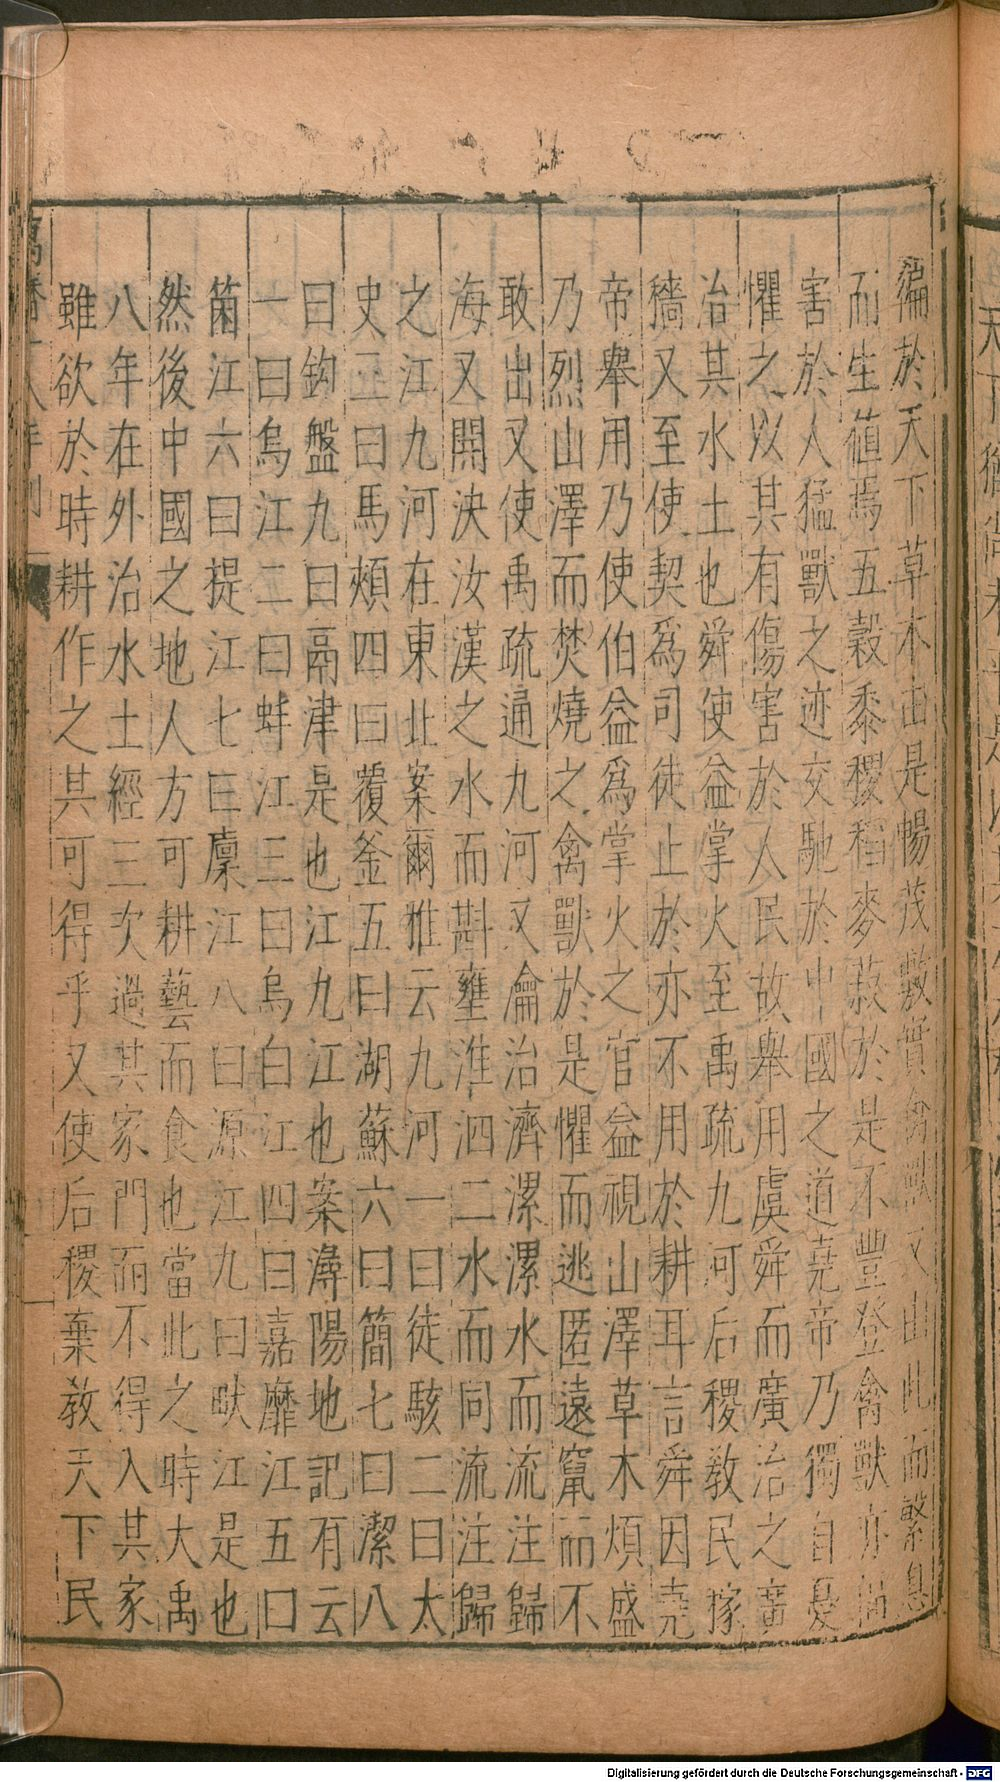 徧於天下草木由是暢茂敷實禽獸又由此而繁息
而生値焉五穀黍稷稻麥菽於是不豐登禽獸亦偪
害於人猛獸之迹交馳於中國之道堯帝乃獨自憂
懼之以其有傷害於人民故舉用虞舜而廣治之廣
治其水土也舜使益掌火至禹疏九河后稷敎民稼
穡又至使契爲司徒止於亦不用於耕耳言舜因堯
帝舉用乃使伯益爲掌火之官益視山澤草木煩盛
乃烈山澤而焚燒之禽獸於是懼而逃匿遠竄而不
敢出又使禹疏通九河又瀹治濟漯漯水而流注歸
海又開決汝漢之水而斟壅淮泗二水而同流注歸
之江九河在東北案爾雅云九河一曰徒駭二曰太
史三曰馬頰四曰覆釜五曰湖蘇六曰簡七曰潔八
曰鈎盤九曰鬲津是也江九江也案潯陽地記有云
一曰烏江二曰蚌江三曰烏白江四曰嘉靡江五曰
箘江六曰提江七曰廩江八曰源江九曰畎江是也
然後中國之地人方可耕藝而食也當此之時大禹
八年在外治水土經三次過其家門而不得入其家
雖欲於時耕作之其可得乎又使后稷棄敎天下民
Digitalisierung gefördert durch die Deutsche Forschungsgemeinschaft - DFG